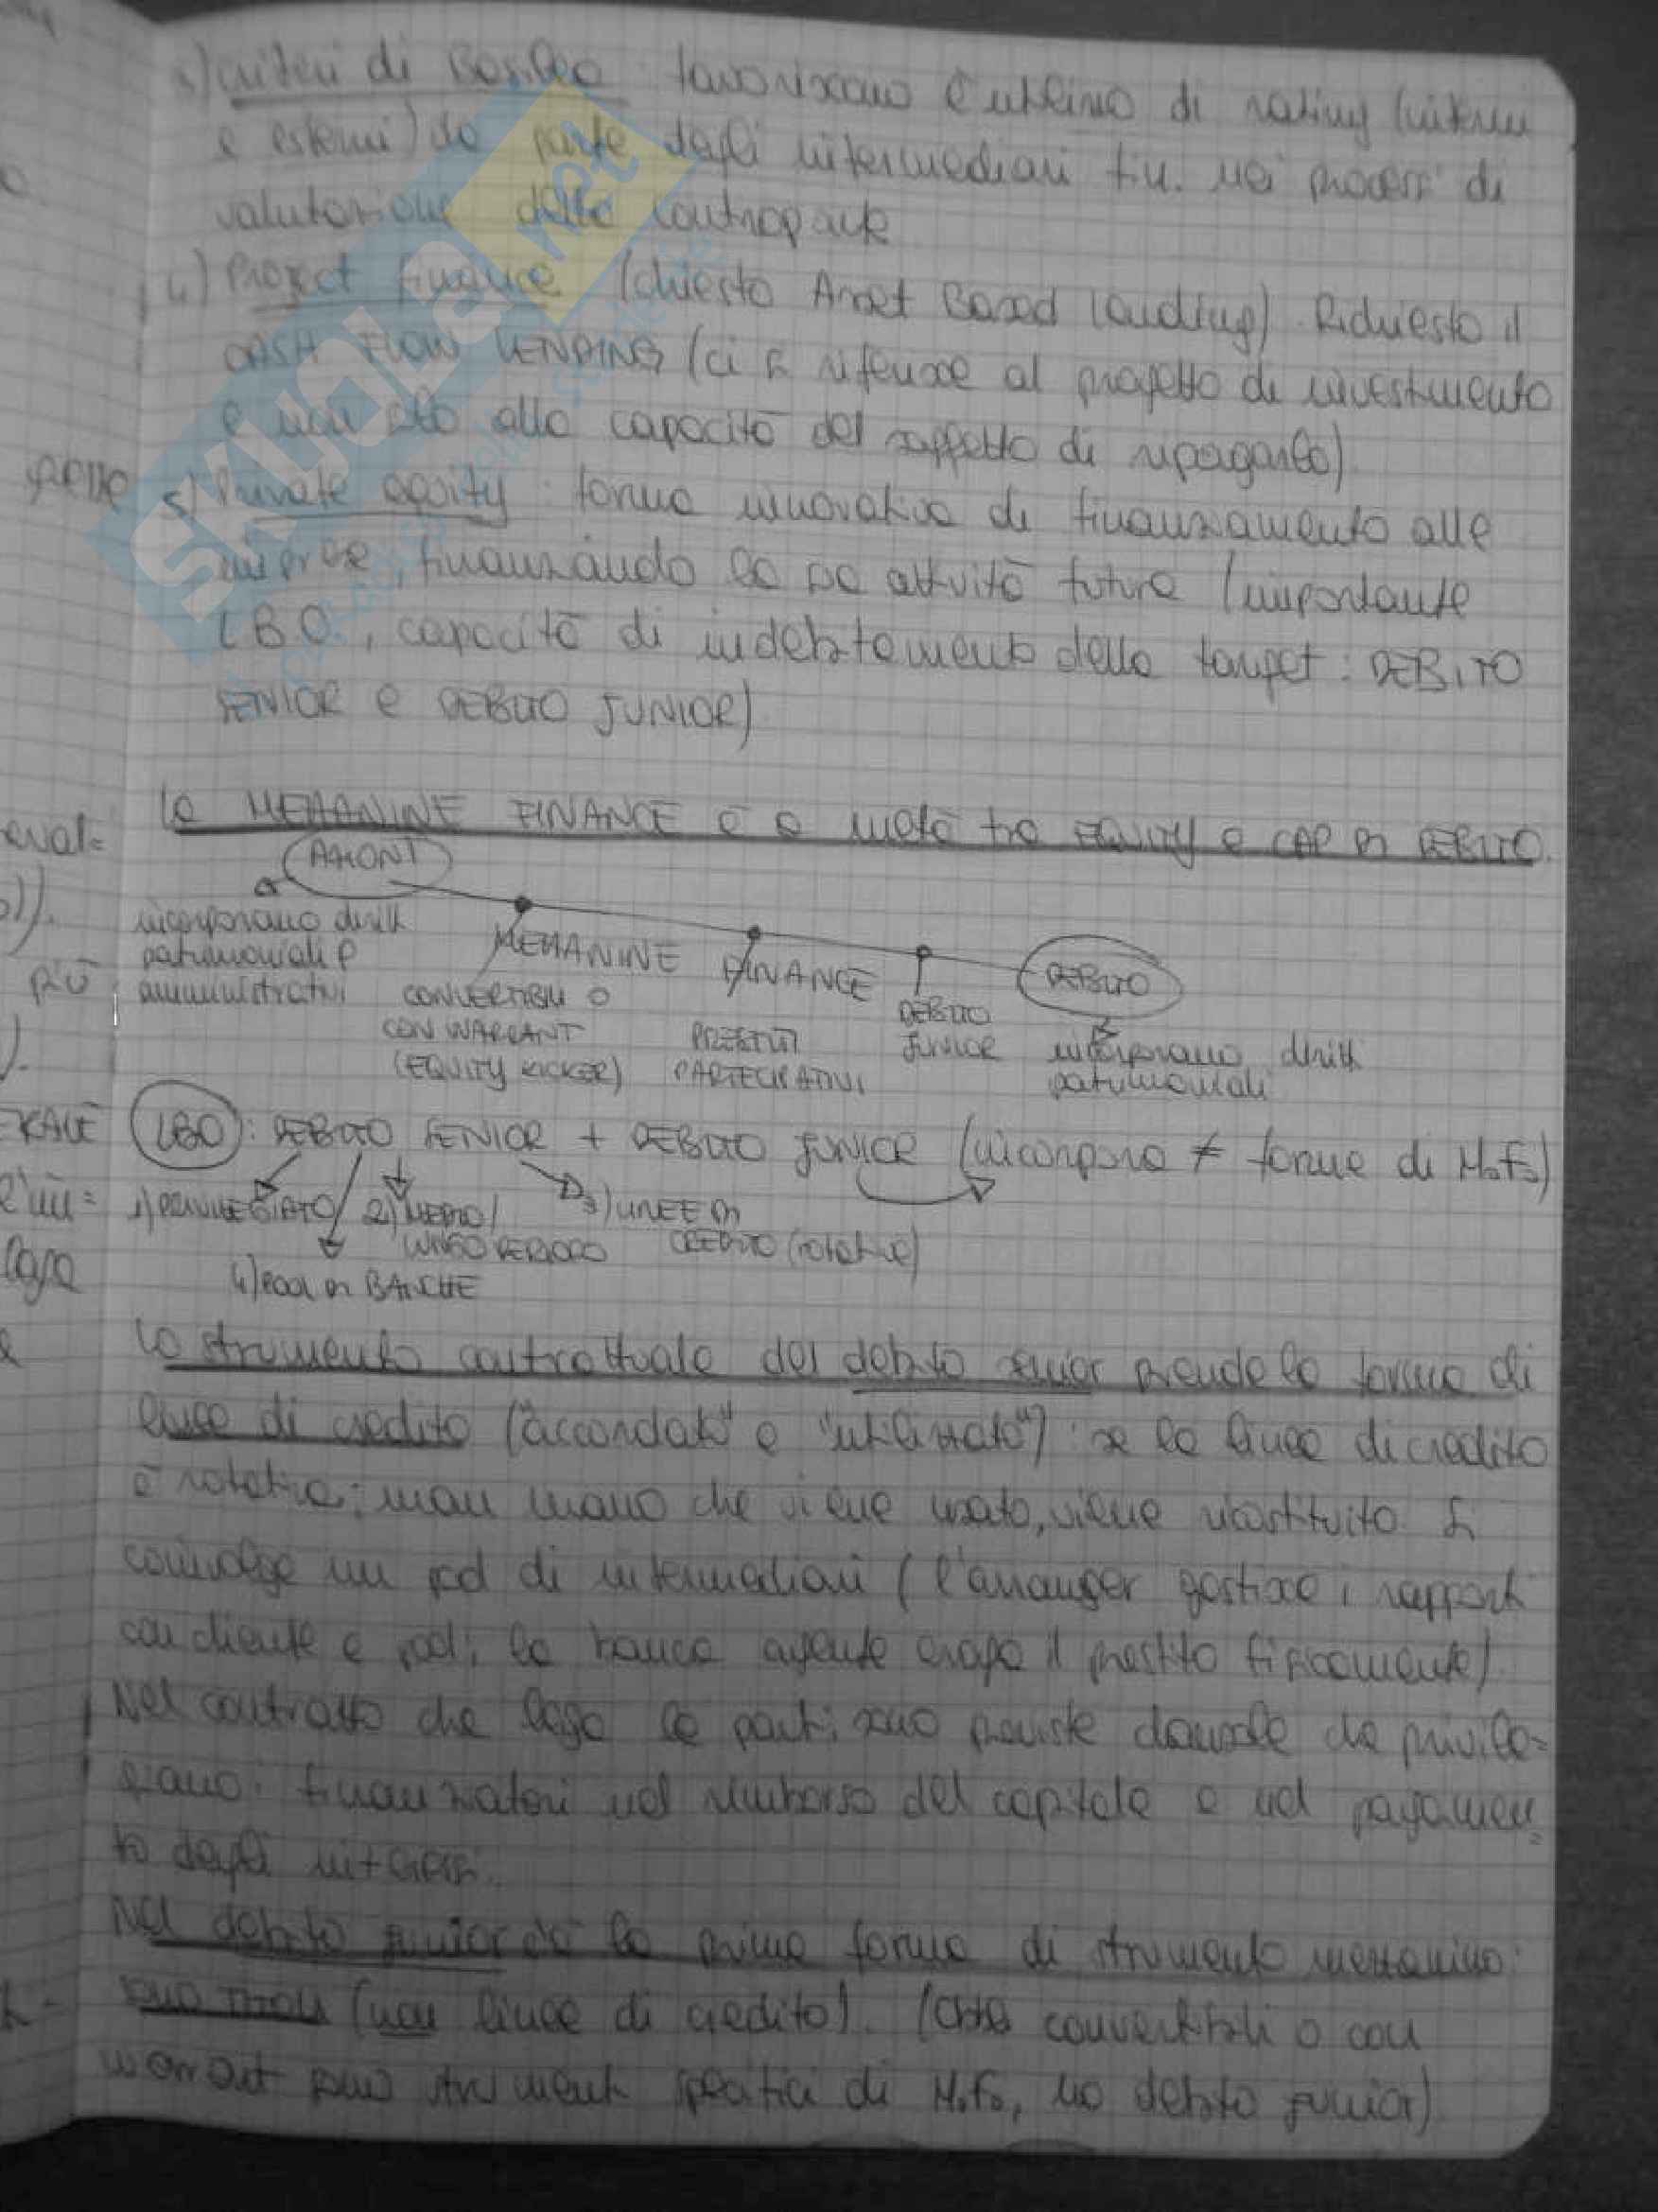 3) criteri di Basilea: favoriscono l'utilizzo di rating (interni
e esterni) da parte degli intermediari fin. nei processi di
valutazione della controparte
4) Project finance (chiesto Asset Based Lending). Richiesto il
CASH FLOW LENDING (ci si riferisce al progetto di investimento
e non solo alla capacità del soggetto di ripagarlo)
5) Private equity: forma innovativa di finanziamento alle
imprese, finanziando la sua attività futura (importante
L.B.O., capacità di indebitamento della target: DEBITO
SENIOR e DEBITO JUNIOR)
La MEZZANINE FINANCE è a metà tra EQUITY e CAP DI DEBITO.
AZIONI
incorporano diritti
patrimoniali e
amministrativi
MEZZANINE FINANCE
CONVERTIBILI O
CON WARRANT
(EQUITY KICKER)
PRESTITI
PARTECIPATIVI
DEBITO
JUNIOR
DEBITO
incorporano diritti
patrimoniali
LBO: DEBITO SENIOR + DEBITO JUNIOR (incorpora ≠ forme di M.F.)
1) PRIVILEGIATO 2) MEDIO/
LUNGO PERIODO
3) LINEE DI
CREDITO (rotative)
4) POOL DI BANCHE
Lo strumento contrattuale del debito senior prende la forma di
linee di credito ("accordato" e "utilizzato"): se la linea di credito
è rotativa: man mano che viene usato, viene ricostituito. Si
coinvolge un pool di intermediari (l'arranger gestisce i rapporti
con cliente e pool; la banca agente eroga il prestito fisicamente)
Nel contratto che lega le parti sono previste clausole che privile=
giano i finanziatori nel rimborso del capitale e nel pagamen=
to degli interessi.
Nel debito junior c'è la prima forma di strumento mezzanino:
sono TITOLI (non linee di credito). (Obbl convertibili o con
warrant sono strumenti specifici di M.F., no debito junior)
SKUOLA.net